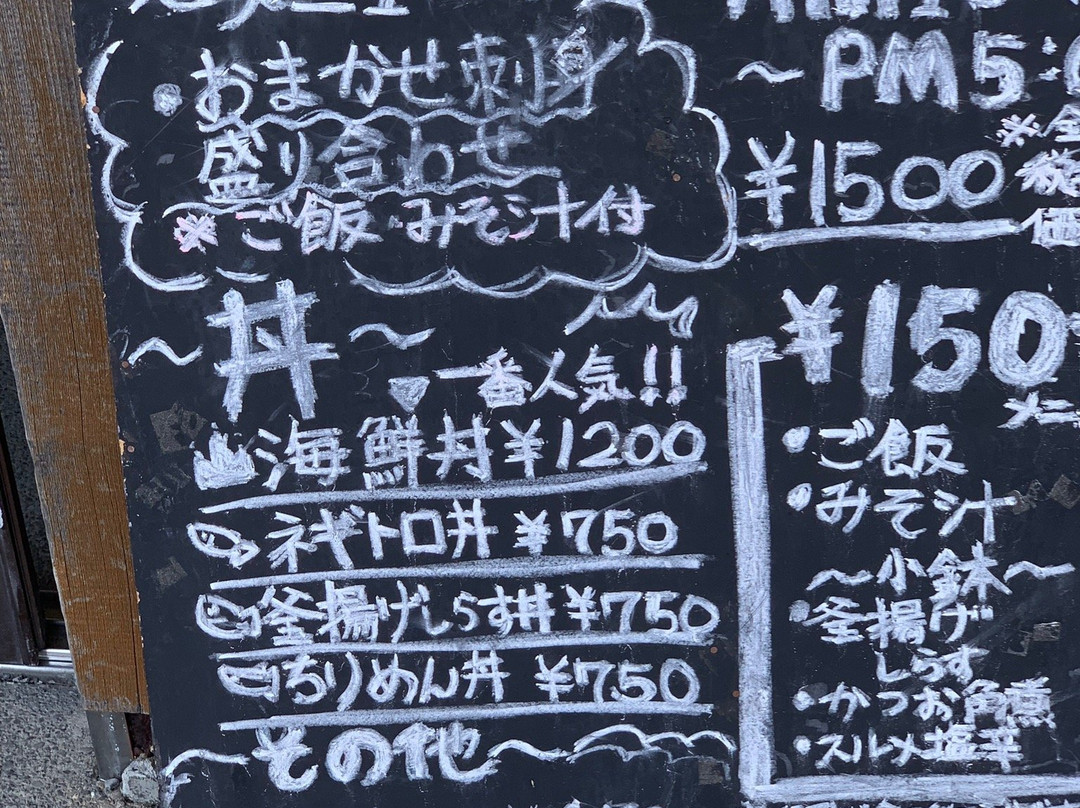 ・おまかせ刺身
盛り合わせ
※ご飯・みそ汁付
~PM5:
¥1500
※全
税
価
~丼~
一番人気!!
海鮮丼¥1200
ネギトロ丼¥750
釜揚げしらす丼¥750
ちりめん丼¥750
~その他~
¥150
メニ
・ご飯
・みそ汁
~小鉢~
・釜揚げ
しらす
・かつお角煮
・スルメ塩辛